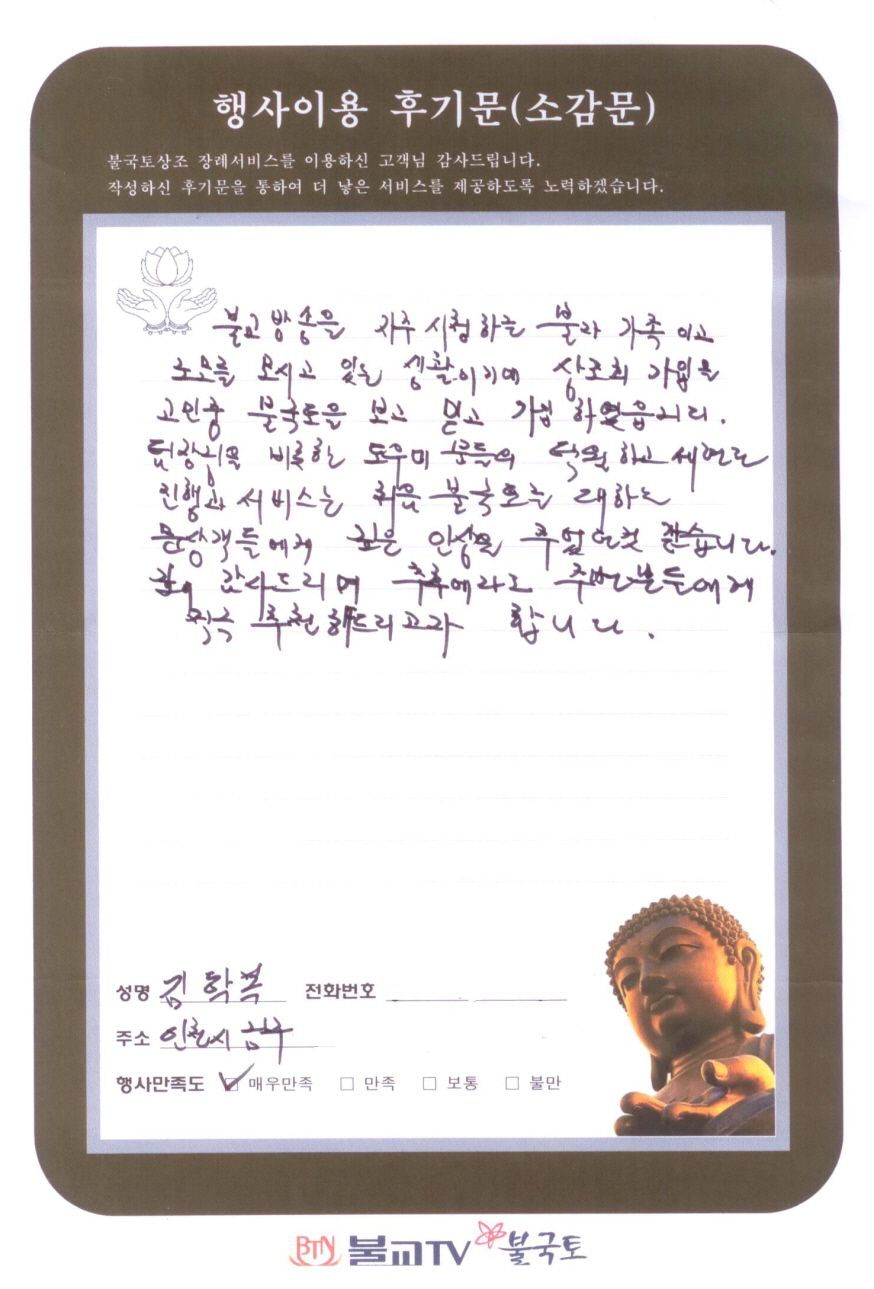 행사이용 후기문(소감문)
불국토상조 장례서비스를 이용하신 고객님 감사드립니다.
작성하신 후기문을 통하여 더 낳은 서비스를 제공하도록 노력하겠습니다.
불교방송을 자주 시청하는 불자 가족이고
노모를 모시고 있는 생활이기에 상조회 가입을
고민중 불국토을 보고 믿고 가입 하였읍니다.
팀장님을 비롯한 도우미 분들의 하고 세련된
진행과 서비스는 처음 불국토를 대하는
문상객들에게 깊은 인상을 주었던것 같습니다.
감사드리며 추후에라도 주변분들에게
적극 추천해드리고자 합니다.
성명 김학복 전화번호
주소 인천시
행사만족도 ☑ 매우만족 □ 만족 □ 보통 □ 불만
BTN 불교TV 불국토